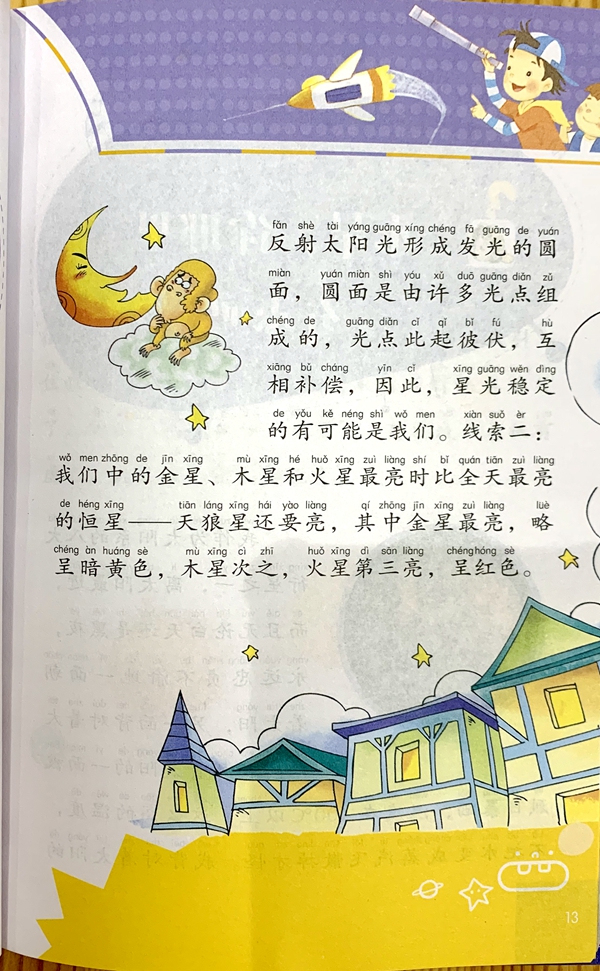 fǎn shè tài yáng guāng xíng chéng fā guāng de yuán
反射太阳光形成发光的圆
miàn yuán miàn shì yóu xǔ duō guāng diǎn zǔ
面，圆面是由许多光点组
chéng de guāng diǎn cǐ qǐ bǐ fú hù
成的，光点此起彼伏，互
xiāng bǔ cháng yīn cǐ xīng guāng wěn dìng
相补偿，因此，星光稳定
de yǒu kě néng shì wǒ men xiàn suǒ èr
的有可能是我们。线索二：
wǒ men zhōng de jīn xīng mù xīng hé huǒ xīng zuì liàng shí bǐ quán tiān zuì liàng
我们中的金星、木星和火星最亮时比全天最亮
de héng xīng tiān láng xīng hái yào liàng qí zhōng jīn xīng zuì liàng lüè
的恒星——天狼星还要亮，其中金星最亮，略
chéng àn huáng sè mù xīng cì zhī huǒ xīng dì sān liàng chéng hóng sè
呈暗黄色，木星次之，火星第三亮，呈红色。
13